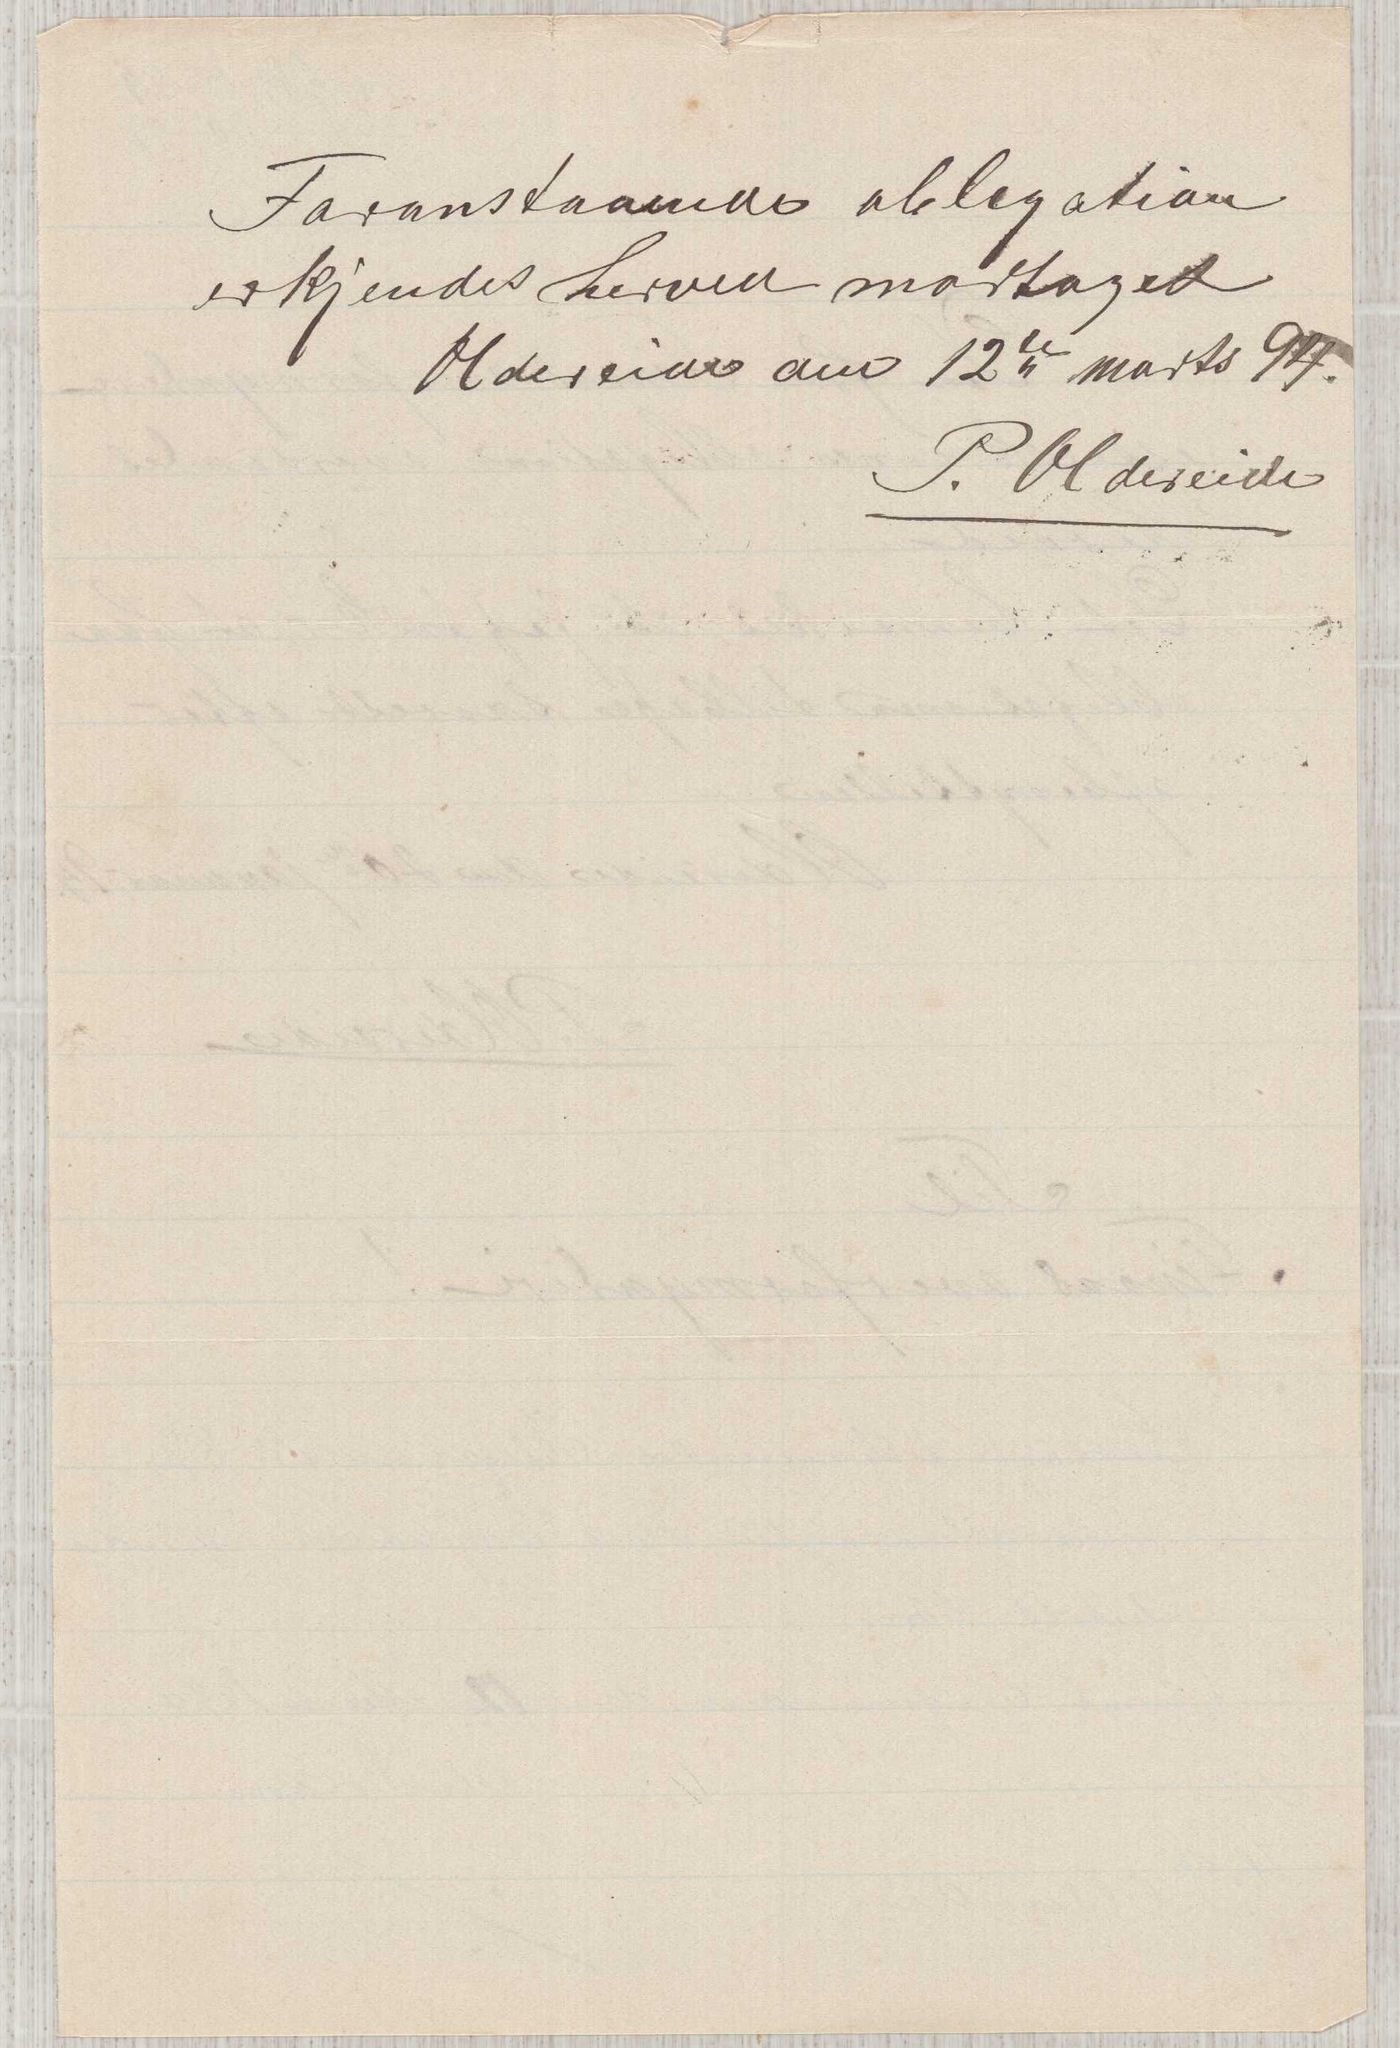 Foranstaaende obligation
erkjendes herved modtaget
Oldereide den 12te marts 94.
P. Oldereide